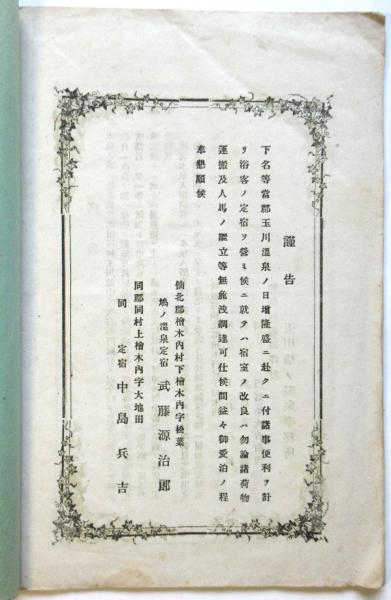 謹告
下名等當郡玉川溫泉ノ日增隆盛ニ赴クニ付諸事便利ヲ計
リ浴客ノ定宿ヲ營ミ候ニ就テハ宿室ノ改良ハ勿論諸荷物
運搬及人馬ノ繼立等無龍淺調達可仕候間益々御愛泊ノ程
奉懇願候
仙北郡檜木內村下檜木內字松葉
鳩ノ溫泉定宿 武藤源治郎
同郡同村上檜木內字大地田
同 定宿 中島兵吉